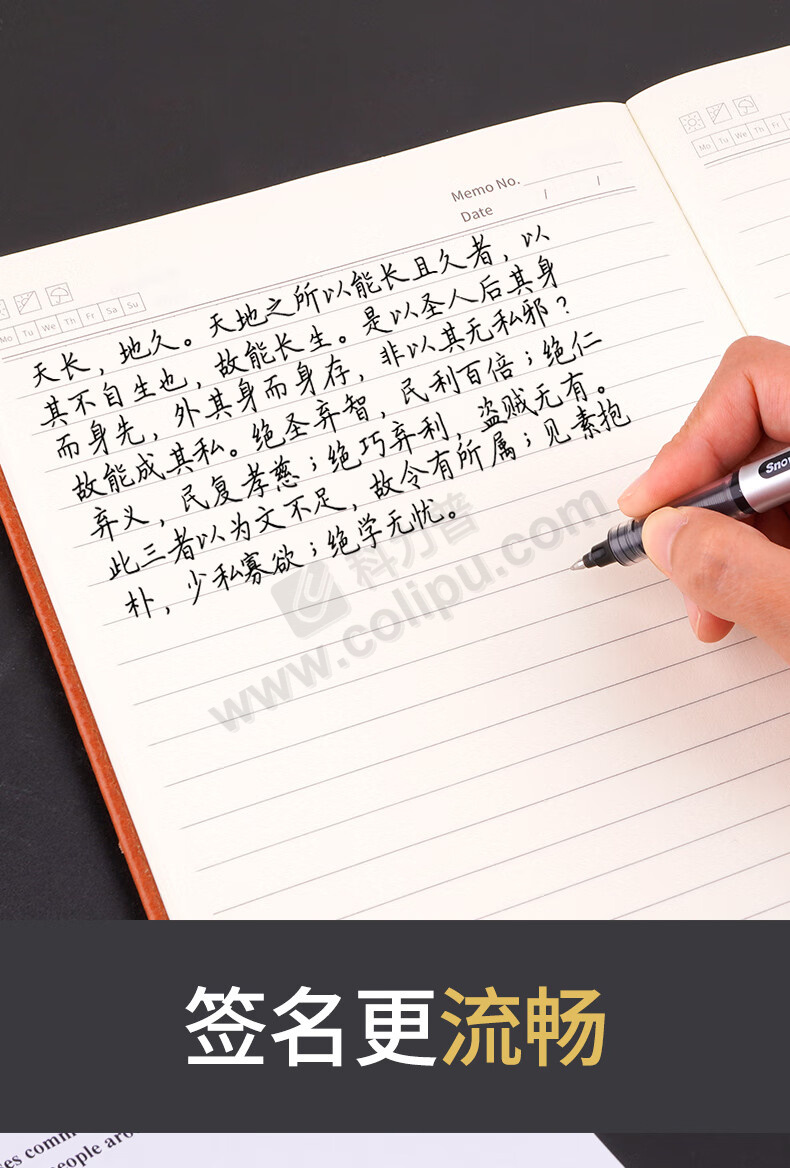 Memo No.
Date / /
Mo Tu We Th Fr Sa Su
Mo Tu We Th Fr
天长，地久。天地之所以能长且久者，以
其不自生也，故能长生。是以圣人后其身
而身先，外其身而身存，非以其无私邪？
故能成其私。绝圣弃智，民利百倍；绝仁
弃义，民复孝慈；绝巧弃利，盗贼无有。
此三者以为文不足，故令有所属；见素抱
朴，少私寡欲；绝学无忧。
科力普
www.colipu.com
Snow
签名更流畅
es comm
eople aro